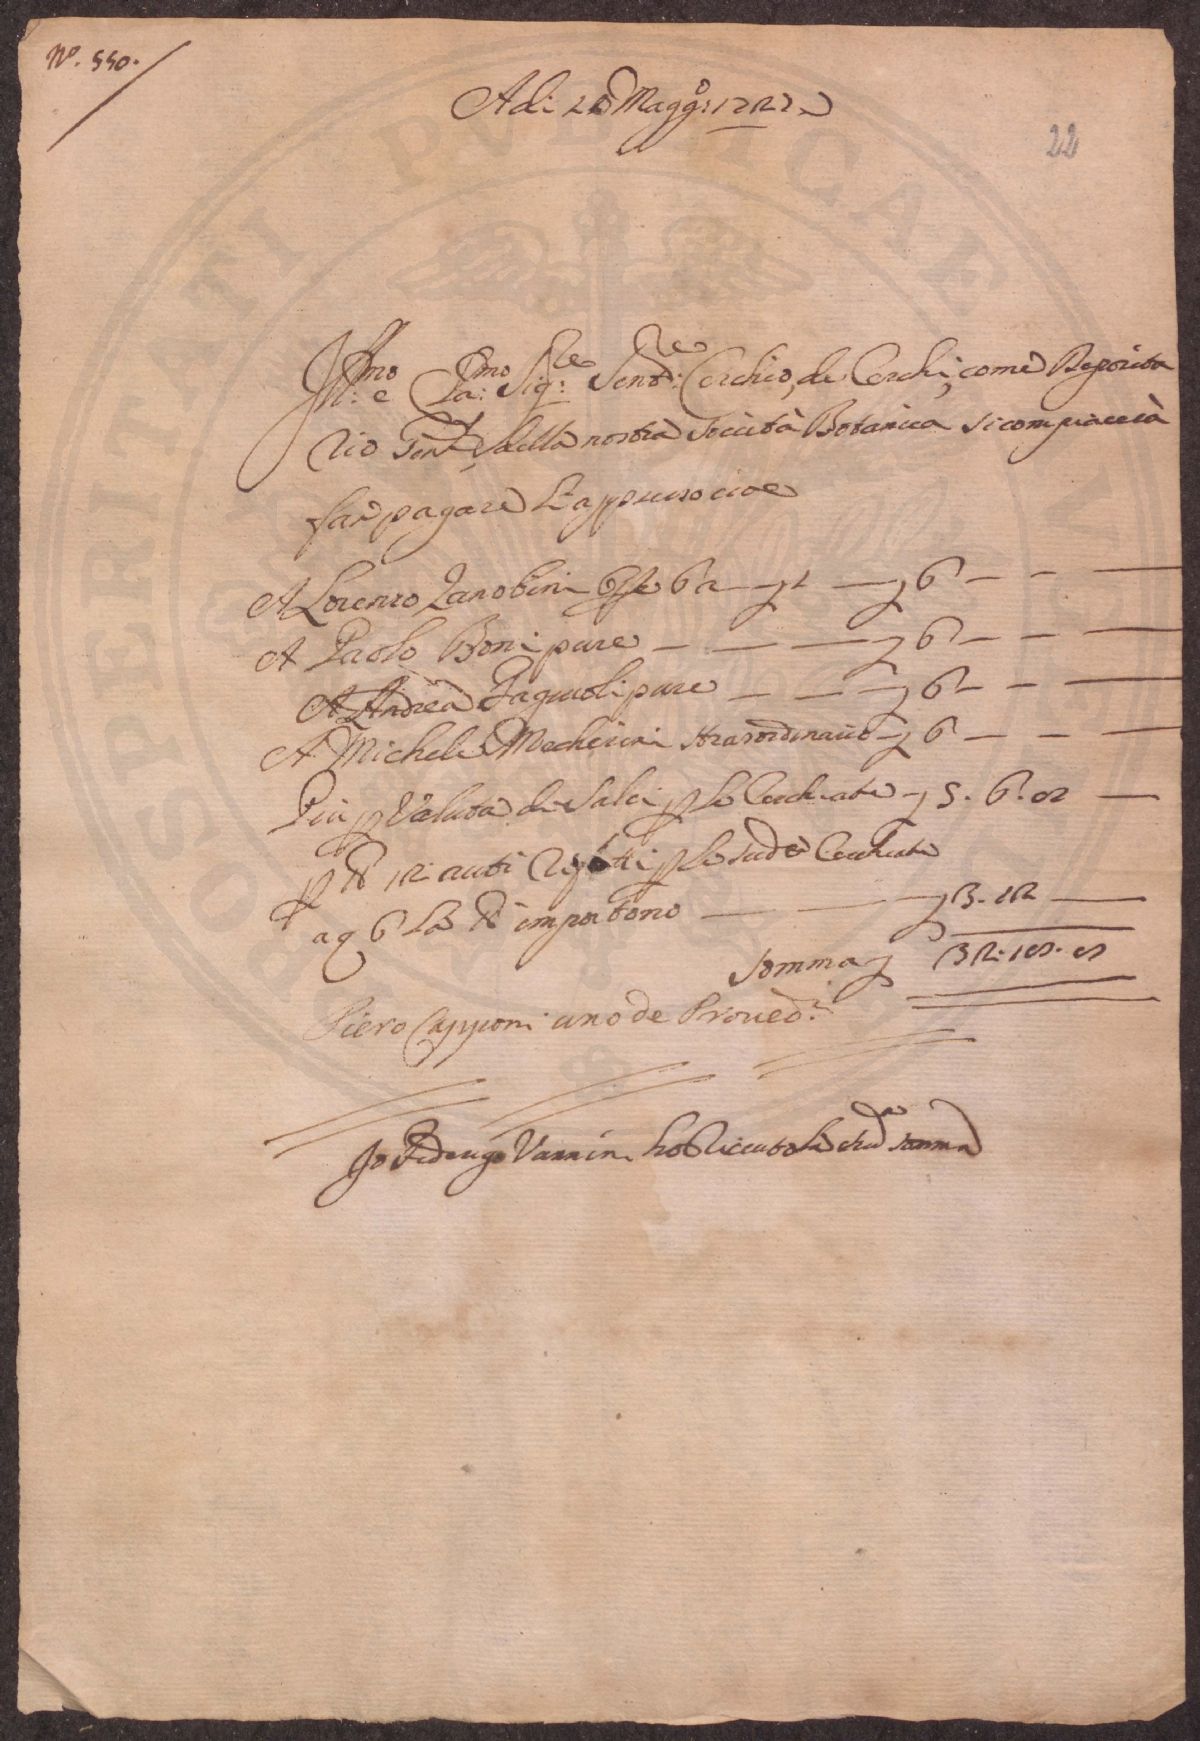 N.º 550.
Adi 28 Magg.o 1727
22
Ill.mo e Cla.mo Sig.re Senat.re Cerchio, de Cerchi, come Deposita
rio Gen.le della nostra Società Botanica si compiacerà
far pagare L'appresso cioè
A Lorenzo Zanobini Opre 6 a £ 1 — £ 6 — — —
A Paolo Boni pure — — — £ 6 — — —
A Andrea Fagiuoli pure — — £ 6 — — —
A Michele Mecherini straordinario £ 6 — — —
Piu p Valuta di Salci p le Cerchiate £ 5. 6. 8 —
p lb 12 auti p le sud.e Cerchiate
a q 6 La lb importono — — £ 3. 12 —
Somma £ 32. 18. 8
Piero Capponi uno de Proued.i
Io Vannini ho Riceuto la sud.a somma